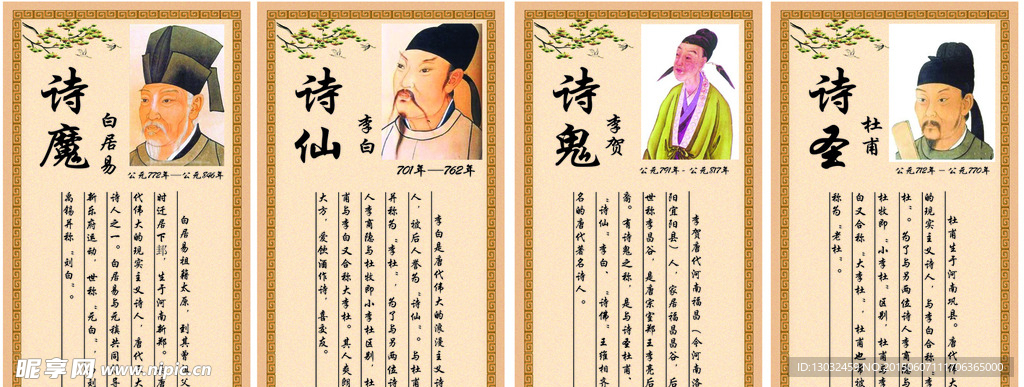 诗魔
白居易
公元772年—公元846年
白居易祖籍太原，到其曾
时迁居下邽，生于河南新郑。
代伟大的现实主义诗人，唐代
诗人之一。白居易与元稹共同
新乐府运动，世称“元白”
禹锡并称“刘白”。
诗仙
李白
701年—762年
李白是唐代伟大的浪漫主义诗
人，被后人誉为“诗仙”。与杜
并称为“李杜”，为了与另两位诗
人李商隐与杜牧即“小李杜”区别，杜
甫与李白又合称大李杜。其人爽朗
大方，爱饮酒作诗，喜交友。
诗鬼
李贺
公元791年-公元817年
李贺唐代河南福昌（今河南洛
阳宜阳县）人，家居福昌昌谷，后
世称李昌谷，是唐宗室郑王李亮后
裔。有诗鬼之称，是与诗圣杜甫、
“诗仙”李白、“诗佛”王维相齐
名的唐代著名诗人。
诗圣
杜甫
公元712年-公元770年
杜甫生于河南巩县。唐代
的现实主义诗人，与李白合称“李
杜”。为了与另两位诗人李商隐
杜牧即“小李杜”区别，杜甫
白又合称“大李杜”，杜甫也
称为“老杜”。
昵享网 www.nipic.cn
ID:13032459 NO:20150607111706365000